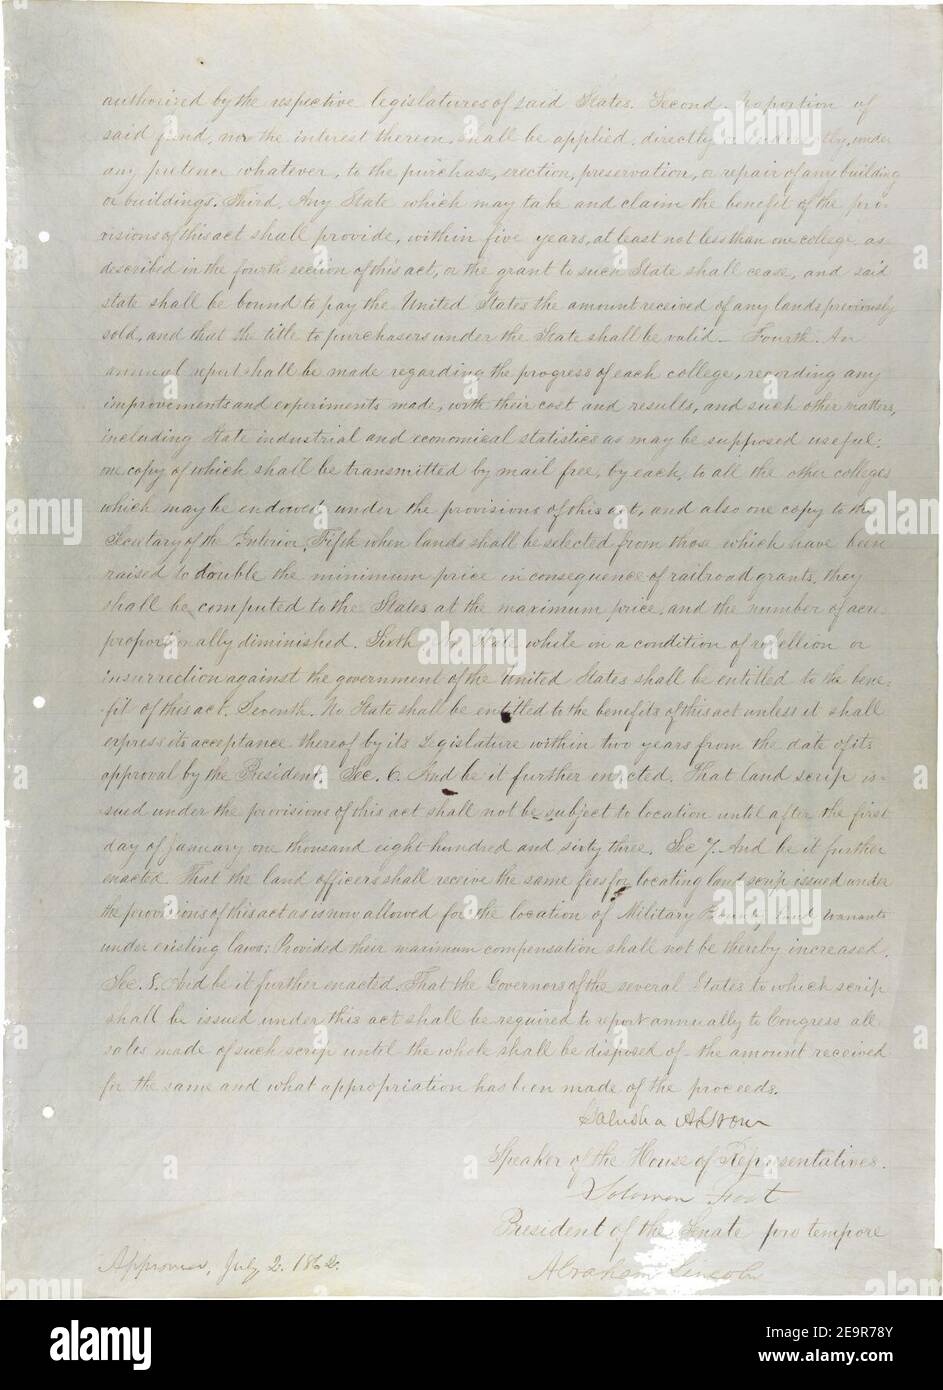 authorized by the respective legislatures of said States. Second. No portion of
said fund, nor the interest thereon, shall be applied, directly or indirectly, under
any pretence whatever, to the purchase, erection, preservation, or repair of any building
or buildings. Third, Any State which may take and claim the benefit of the pro-
visions of this act shall provide, within five years, at least not less than one college, as
described in the fourth section of this act, or the grant to such State shall cease, and said
state shall be bound to pay the United States the amount received of any lands previously
sold, and that the title to purchasers under the State shall be valid_ Fourth. An
annual report shall be made regarding the progress of each college, recording any
improvements and experiments made, with their cost and results, and such other matters,
including State industrial and economical statistics as may be supposed useful;
one copy of which shall be transmitted by mail free, by each, to all the other colleges
which may be endowed under the provisions of this act, and also one copy to the
Secretary of the Interior. Fifth when lands shall be selected from those which have been
raised to double the minimum price in consequence of railroad grants, they
shall be computed to the States at the maximum price, and the number of acres
proportionally diminished. Sixth No State while in a condition of rebellion or
insurrection against the government of the United States shall be entitled to the bene-
fit of this act. Seventh. No State shall be entitled to the benefits of this act unless it shall
express its acceptance thereof by its Legislature within two years from the date of its
approval by the President. Sec. 6. And be it further enacted. That land scrip is-
sued under the provisions of this act shall not be subject to location until after the first
day of January one thousand eight hundred and sixty three. Sec 7. And be it further
enacted. That the land officers shall receive the same fees for locating land scrip issued under
the provisions of this act as is now allowed for the location of Military Bounty land warrants
under existing laws: Provided their maximum compensation shall not be thereby increased.
Sec. 8. And be it further enacted. That the Governors of the several States to which scrip
shall be issued under this act shall be required to report annually to Congress all
sales made of such scrip until the whole shall be disposed of - the amount received
for the same and what appropriation has been made of the proceeds.
Galusha A Grow
Speaker of the House of Representatives.
Solomon Foot
President of the Senate pro tempore
Approved, July 2. 1862.
Abraham Lincoln
alamy
Image ID: 2E9R78Y
www.alamy.com